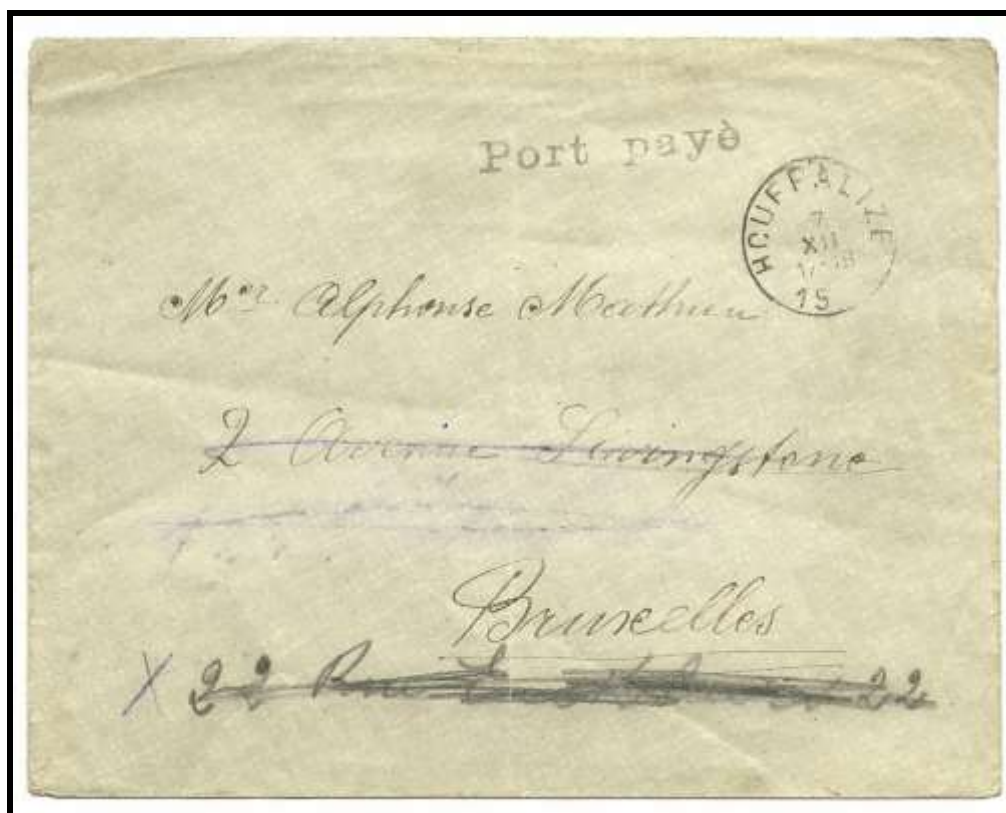 Port payè
HOUFFALIZE
7
XII
15
Mr. Alphonse
2 Avenue Livingstone
Bruxelles
X 22 Rue 22